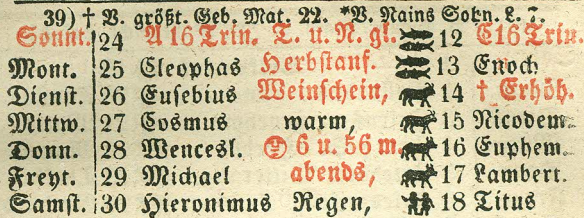 39) † V. größt. Geb. Mat. 22. *V. Nains Sohn. L. 7.
Sonnt. 24 A 16 Trin. T. u. N. gl. 12 C16 Trin.
Mont. 25 Cleophas Herbstanf. 13 Enoch
Dienst. 26 Eusebius Weinschein, 14 † Erhöh.
Mittw. 27 Cosmus warm, 15 Nicodem.
Donn. 28 Wencesl. 6 u. 56 m. 16 Euphem.
Freyt. 29 Michael abends, 17 Lambert.
Samst. 30 Hieronimus Regen, 18 Titus